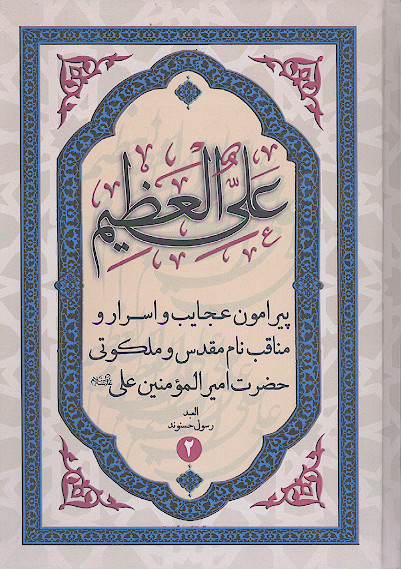 علیّ العظیم
پیرامون عجایب و اسرار و
مناقب نام مقدس و ملکوتی
حضرت امیرالمؤمنین علی علیه‌السلام
العبد
رسول حسنوند
۲